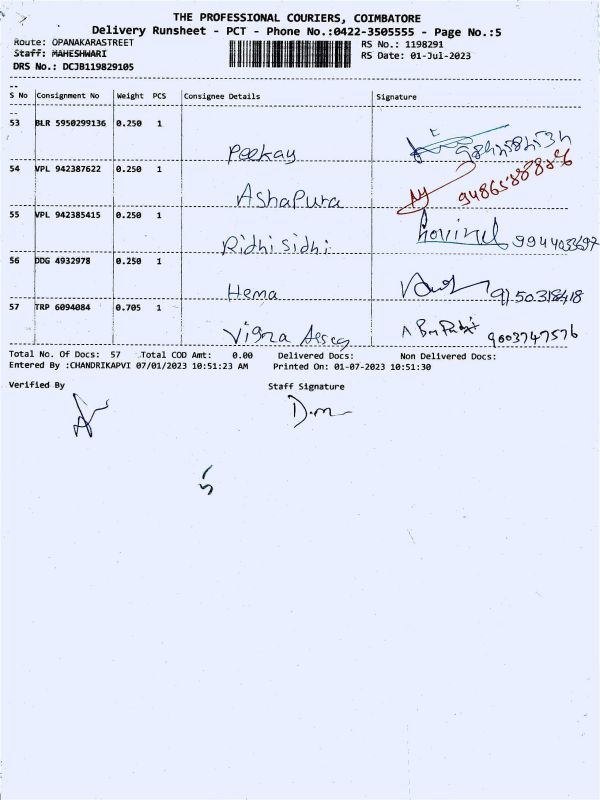 THE PROFESSIONAL COURIERS, COIMBATORE
Delivery Runsheet - PCT - Phone No.:0422-3505555 - Page No.:5
Route: OPANAKARASTREET RS No.: 1198291
Staff: MAHESHWARI RS Date: 01-Jul-2023
DRS No.: DCJB119829105
S No Consignment No Weight PCS Consignee Details Signature
53 BLR 5950299136 0.250 1
Peekay
54 VPL 942387622 0.250 1
Ashapura
55 VPL 942385415 0.250 1 Govind 9944033697
Ridhi sidhi
56 DDG 4932978 0.250 1
Hema 9150318418
57 TRP 6094084 0.705 1
9003747576
Total No. Of Docs: 57 Total COD Amt: 0.00 Delivered Docs: Non Delivered Docs:
Entered By :CHANDRIKAPVI 07/01/2023 10:51:23 AM Printed On: 01-07-2023 10:51:30
Verified By Staff Signature